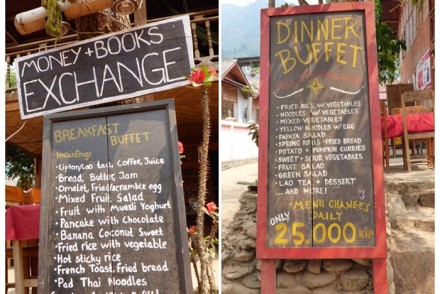 MONEY + BOOKS
EXCHANGE
BREAKFAST BUFFET
Including:
Coffee, Juice
Bread, Butter, Jam
Omelet, Fried/scramble egg
Mixed Fruit Salad
Fruit with Muesli Yoghurt
Pancake with Chocolate
Banana Coconut Sweet
Fried rice with vegetable
Hot sticky rice
French Toast, Fried bread
Pad Thai Noodles
DINNER
BUFFET
- FRIED RICE W/ VEGETABLES
- NOODLES W/ VEGETABLES
- MIXED VEGETABLES
- YELLOW NOODLES W/ EGG
- PAPAYA SALAD
- SPRING ROLLS + FRIED BREAD
- POTATO + PUMPKIN CURRY
- SWEET + SOUR VEGETABLES
- FRUIT SALAD
- GREEN SALAD
- LAO TEA + DESSERT
... AND MORE!
MENU CHANGES
DAILY
ONLY
25.000 KIP